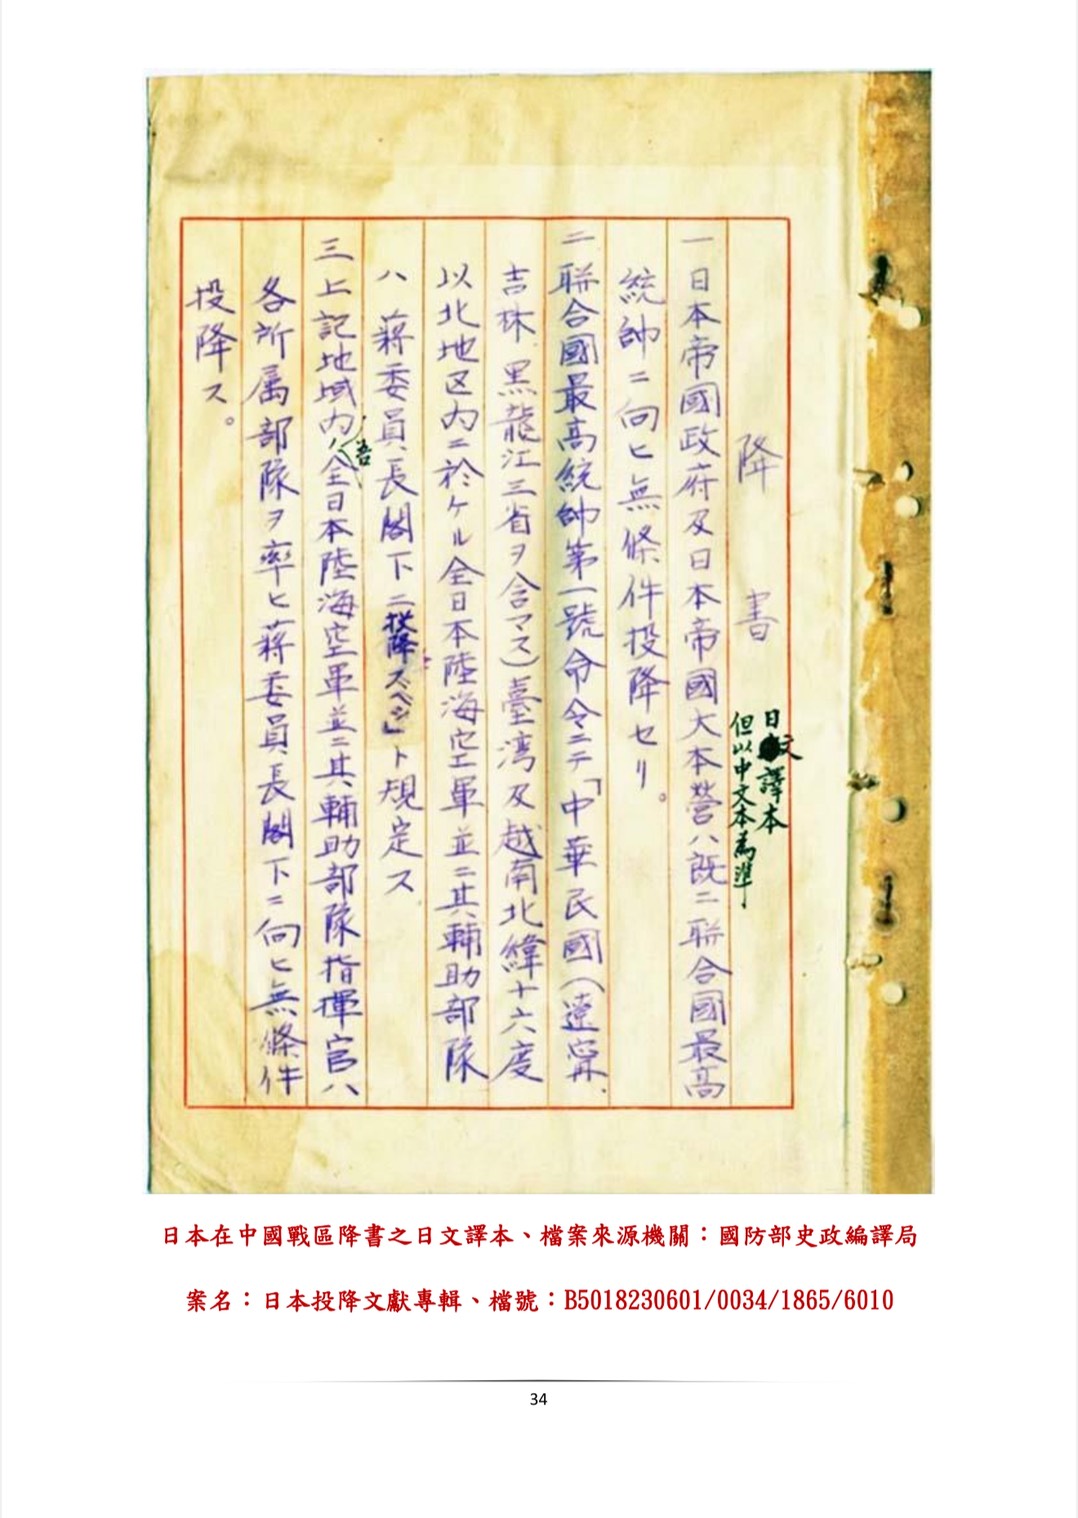 降書
日文譯本
但以中文本為準
一日本帝國政府及日本帝國大本營ハ既ニ聯合國最高
統帥ニ向ヒ無條件投降セリ。
二聯合國最高統帥第一號命令ニテ「中華民國(遼寧、
吉林、黑龍江三省ヲ含マス)臺湾及越南北緯十六度
以北地区内ニ於ケル全日本陸海空軍並ニ其輔助部隊
ハ蔣委員長閣下ニ投降スベシ」ト規定ス
三上記地域内ノ吾全日本陸海空軍並ニ其輔助部隊指揮官ハ
各所属部隊ヲ率ヒ蔣委員長閣下ニ向ヒ無條件
投降ス。
日本在中國戰區降書之日文譯本、檔案來源機關：國防部史政編譯局
案名：日本投降文獻專輯、檔號：B5018230601/0034/1865/6010
34